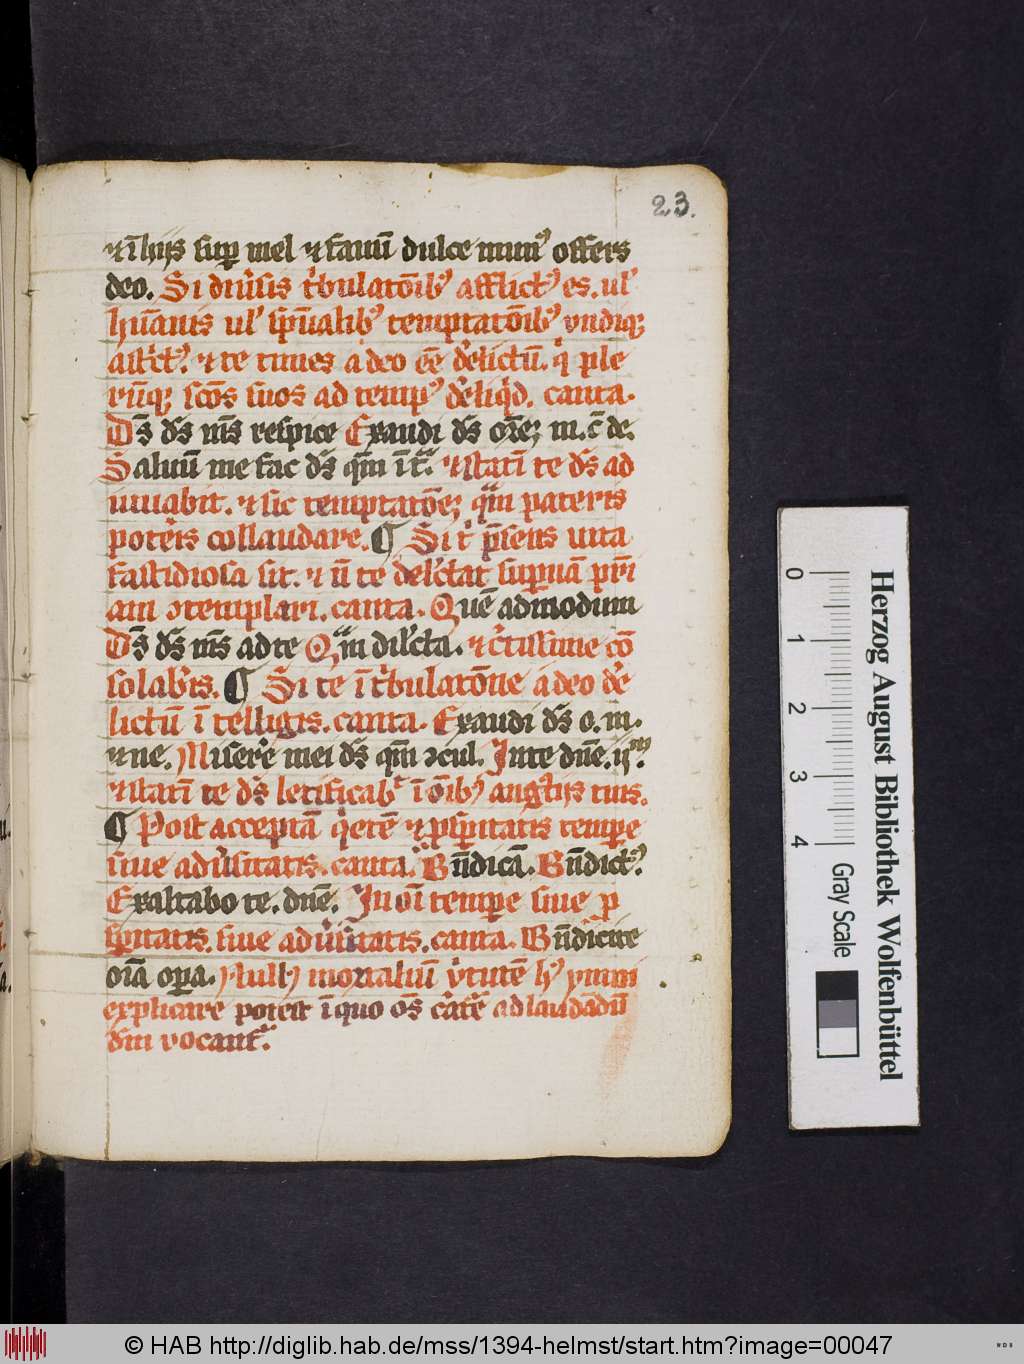 23.
⁊ ī hijs sup mel ⁊ fauū dulce munꝰ offers
deo. Si diūsis tͥbulatōibꝰ afflictꝰ es. ulͤ
hūanis ulͤ spūalibꝰ temptatōibꝰ vndiqꝫ
⁊ te times a deo eē dͤlictū. qͥ ple
rūqꝫ scōs suos ad tempꝰ dͤliqͥd. canta.
Ds̄ ds̄ ms̄ respice Exaudi ds̄ orōeꝫ m. c̄ de.
Saluū me fac ds̄ qm̄ ⁊ statī te ds̄ ad
iuuabit. ⁊ sic temptatōeꝫ qᵃm pateris
potēis collaudare. ¶ Si tͥ p̄sens uita
fastidiosa sit. ⁊ ū te delͨtat supnā pr̄i
am ꝯtemplari. canta. Quē admodum
Ds̄ ds̄ ms̄ ad te Qᵃm dilͨta. ⁊ cͤtissime cō
solabͤis. ¶ Si te ī tͥbulatōne a deo dͤe
lictū ī telligis. canta. Exaudi ds̄ o. m.
⁊ ne. Miserͤe mei ds̄ qm̄ ꝯcul. In te dn̄e. ijᵐ.
⁊ statī te ds̄ letificabͭ ī oībꝰ angustijs tuis.
¶ Post acceptā qͥetē ⁊ pspͥitatis tempe
siue adūsitatis. canta. Bn̄dicā. Bn̄dictꝰ.
Exaltabo te. dn̄e. In oī tempe siue p
spitatis. siue adūsitatis. canta. Bn̄dicite
oīa opa. Nullꝰ mortaliū vͥtutē hꝰ ymni
explicare potest ī quo os̄ cͤatͤe ad laudādū
dm̄ vocantͬ.
Herzog August Bibliothek Wolfenbüttel
0 1 2 3 4
Gray Scale
© HAB http://diglib.hab.de/mss/1394-helmst/start.htm?image=00047